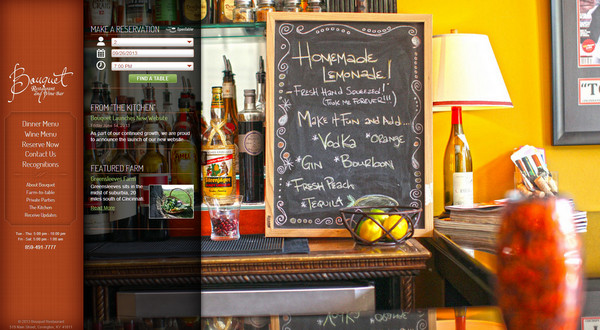 Bouquet
Restaurant
and Wine Bar
Dinner Menu
Wine Menu
Reserve Now
Contact Us
Recognitions
About Bouquet
Farm-to-table
Private Parties
The Kitchen
Receive Updates
Tue - Thu, 5:00 pm - 10:00 pm
859-491-7777
MAKE A RESERVATION
OpenTable
2
09/26/2013
7:00 PM
FIND A TABLE
FROM "THE KITCHEN"
Bouquet Launches New Website
Friday June 14, 2013
As part of our continued growth, we are proud
to announce the launch of our new website.
FEATURED FARM
Greensleeves Farm
Greensleeves sits in the
midst of suburbia, 20
miles south of Cincinnati.
Read More
Homemade
Lemonade!
- Fresh Hand Squeezed!
(Took me forever!!!)
Make it Fun and Add...
*Vodka *Orange
*Gin *Bourbon
*Fresh Peach
*Tequila